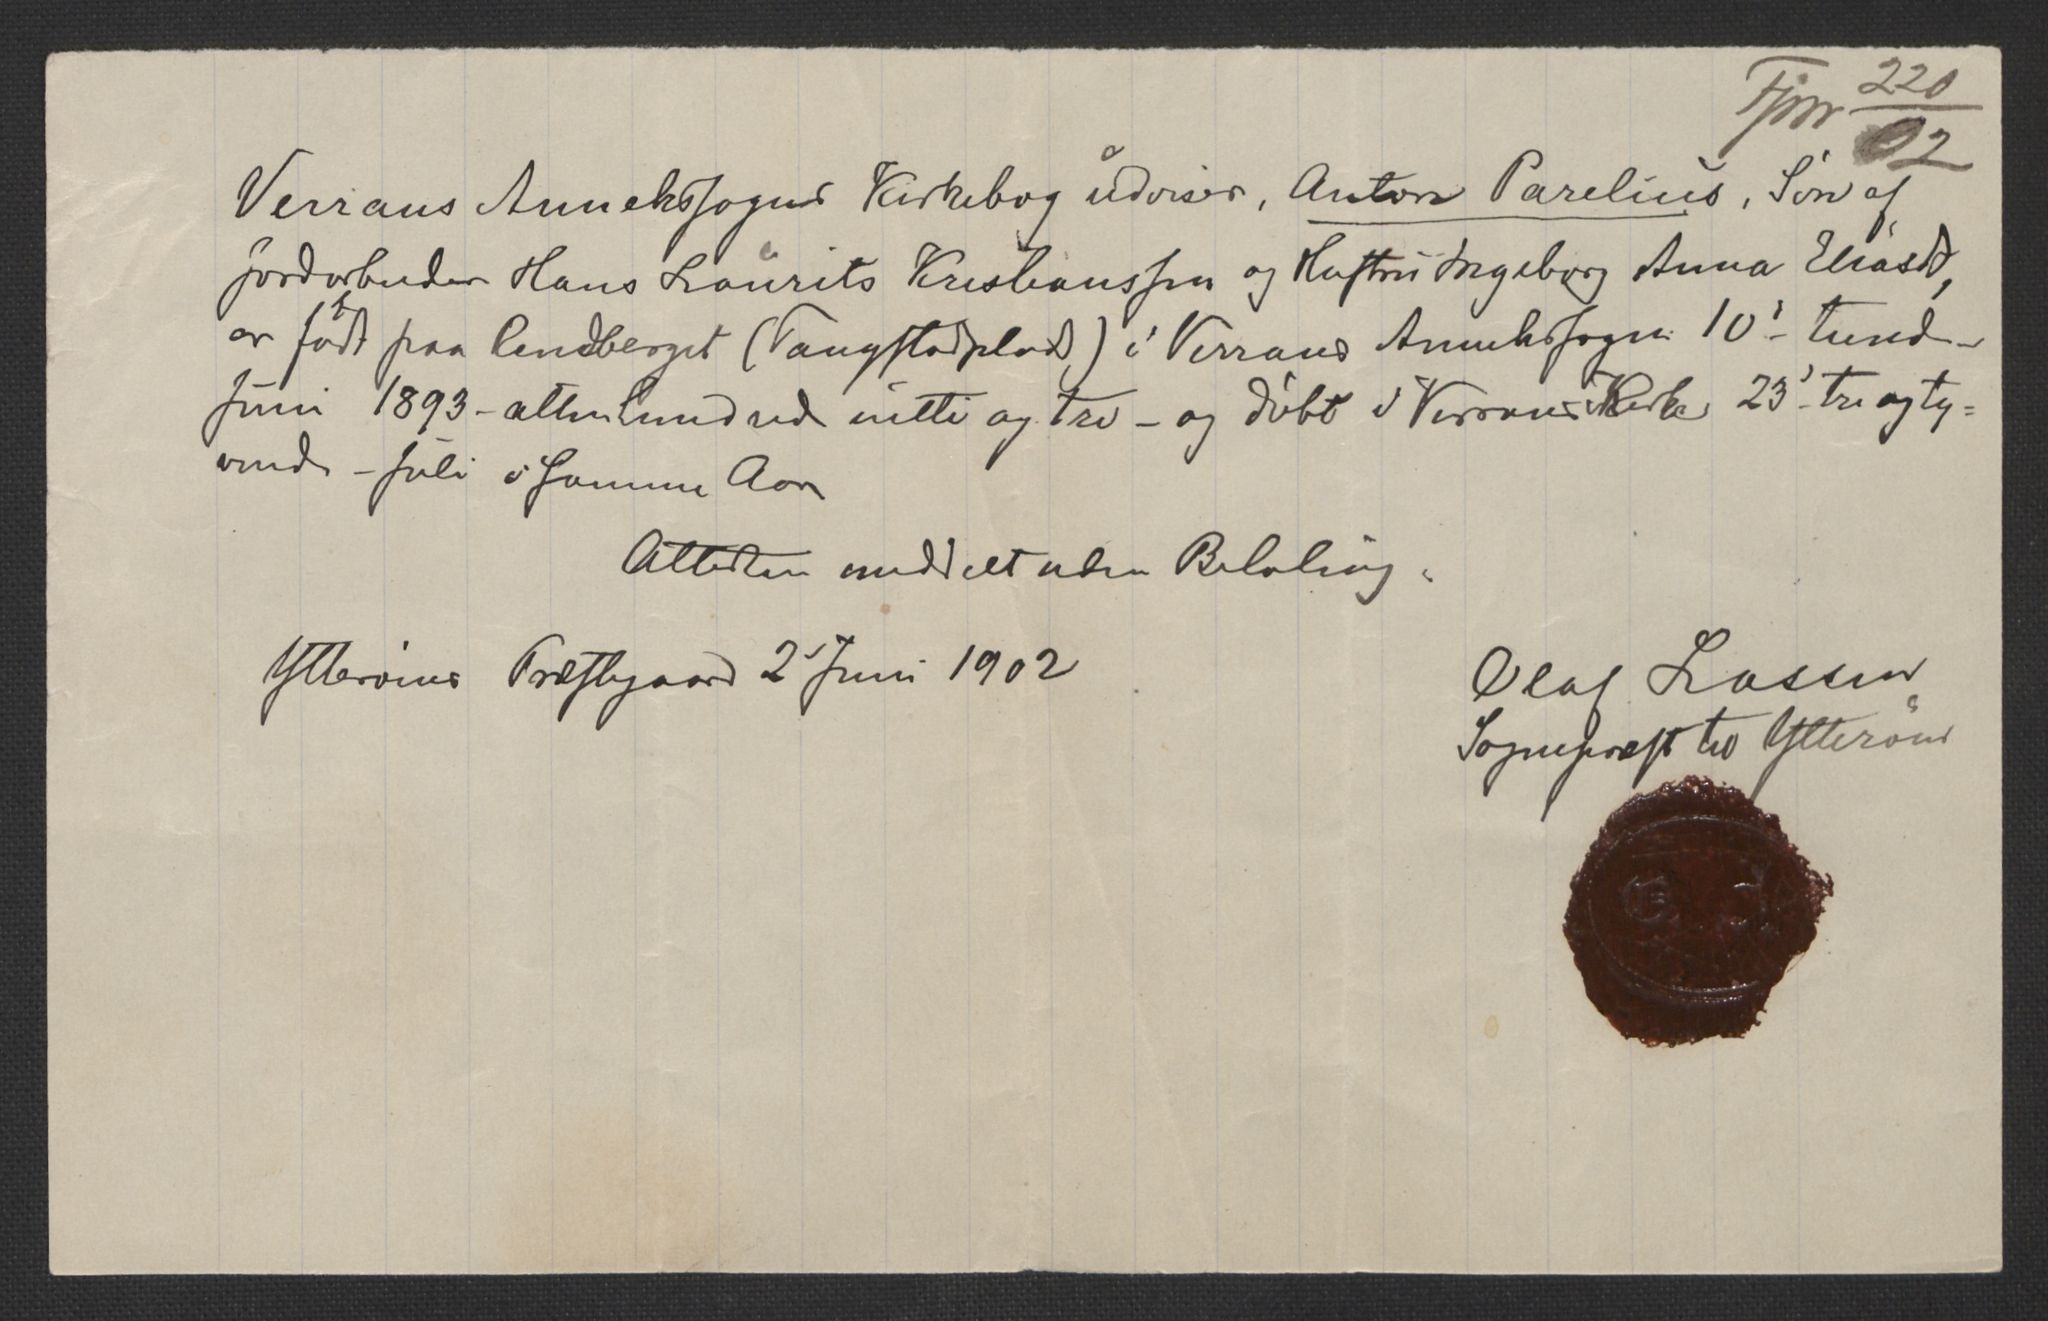 Fjnr 220/02
Verrans Annekssogns Kirkebog udviser, Anton Parelius, Søn af
Jordarbeider Hans Laurits Kristianssen og Hustru Ingeborg Anna Eliasd,
er født paa Lindberget (Tangstadplads) i Verrans Annekssogn 10' - tiende -
Juni 1893 - attenhundrede nitti og tre - og døbt i Verrans Kirke 23' - tre og ty=
vende - Juli i samme Aar
Attesten meddelt uden Betaling.
Ytterøens Præstegaard 2' Juni 1902
Olaf Lassen
Sogneprest til Ytterøen